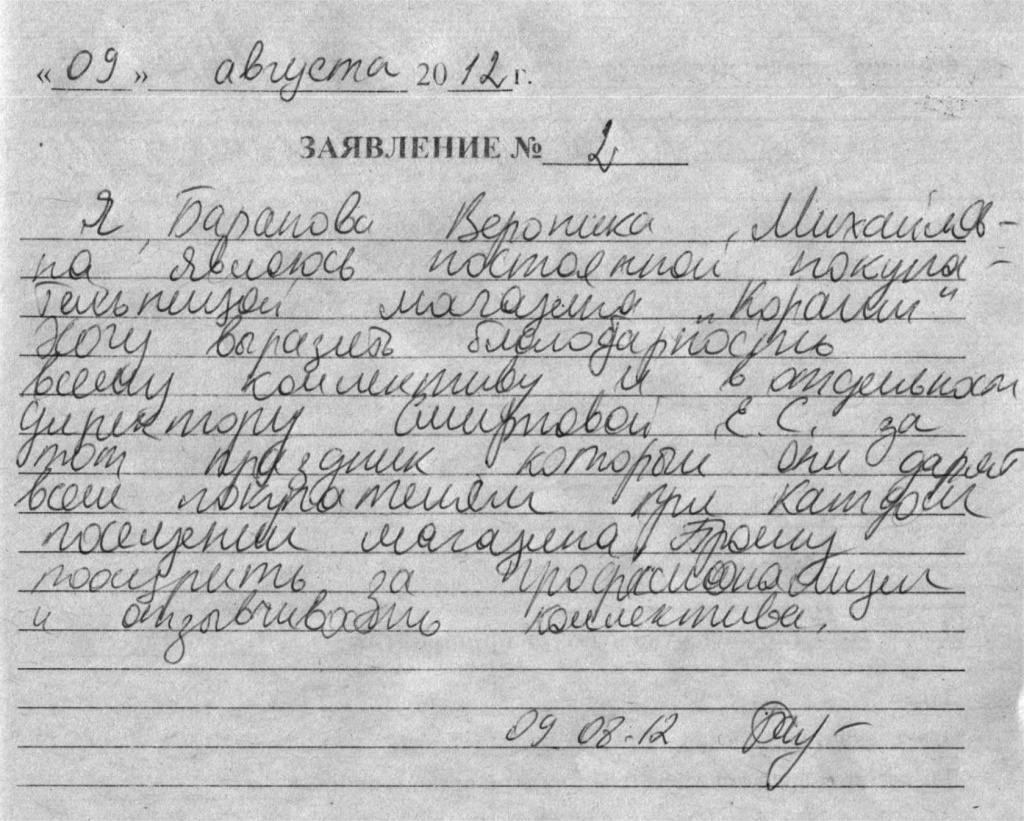 « 09 » августа 2012 г.
ЗАЯВЛЕНИЕ № 2
Я, Баранова Вероника Михайлов-
на являюсь постоянной покупа-
тельницой магазина „Коралл"
Хочу выразить благодарность
всему коллективу и в отдельности
директору Смирновой Е.С. за
тот праздник который они дарят
всем покупателям при каждом
посещении магазина. Прошу
поощрить за профессионализм
и отзывчивость коллектива.
09 08.12